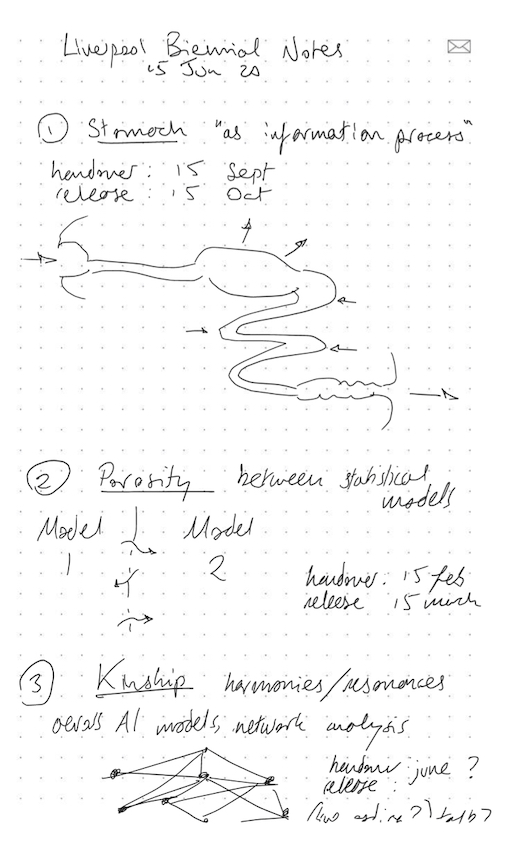 Liverpool Biennial Notes
15 Jun 20
① Stomach "as information process"
handover: 15 Sept
release: 15 Oct
② Porosity between statistical
models
Model Model
1 2
handover: 15 feb
release 15 march
③ Kinship harmonies/resonances
across AI models, network analysis
handover june ?
release:
talk?